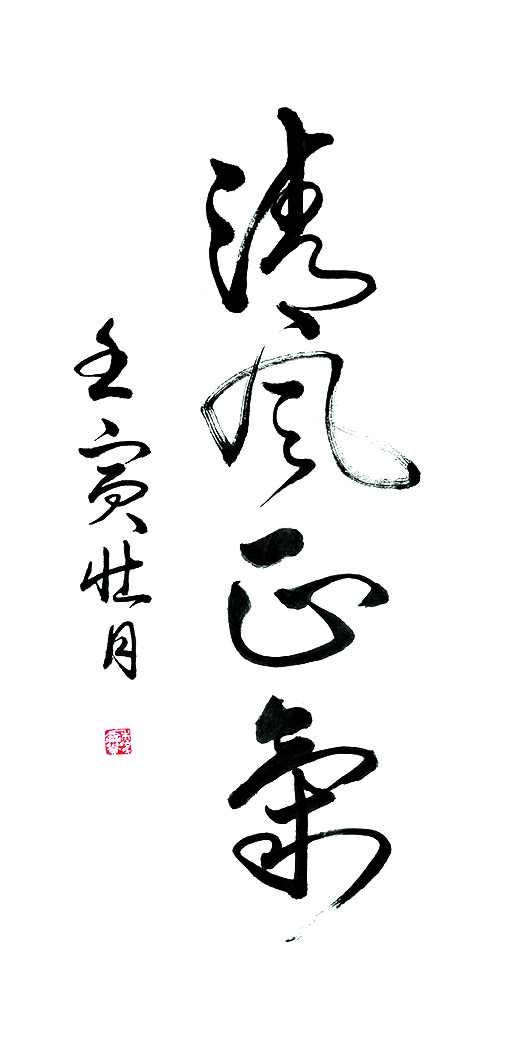 清風正氣
壬寅壮月